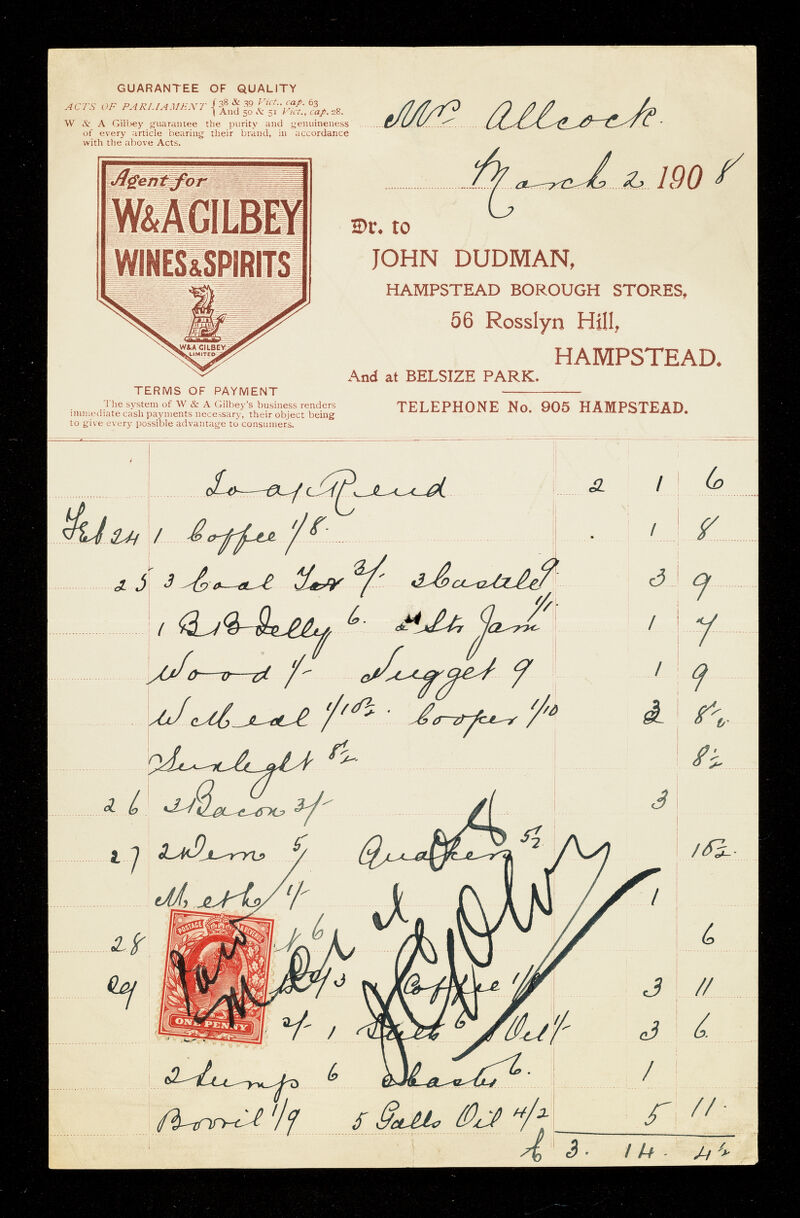 GUARANTEE OF QUALITY
ACTS OF PARLIAMENT { 38 & 39 Vict., cap. 63
{ And 50 & 51 Vict., cap. 28.
W & A Gilbey guarantee the purity and genuineness
of every article bearing their brand, in accordance
with the above Acts.
Agent for
W&A GILBEY
WINES & SPIRITS
W&A GILBEY
LIMITED
TERMS OF PAYMENT
The system of W & A Gilbey's business renders
immediate cash payments necessary, their object being
to give every possible advantage to consumers.
Mrs Allcock.
March 2 1908
Dr. to
JOHN DUDMAN,
HAMPSTEAD BOROUGH STORES,
56 Rosslyn Hill,
HAMPSTEAD.
And at BELSIZE PARK.
TELEPHONE No. 905 HAMPSTEAD.
To a/c Rend 2 1 6
Feb 24 1 Coffee 1/8 1 8
25 3 Coal Tar 3/- 3 Castile 9 3 9
1 BB Jelly 6 Str Jam 1/1 1 7
Wood 1/- Nugget 9 1 9
W Meal 1/10½ Cooper 1/10 3 8½
Sunlight 8½ 8½
26 3 Bacon 3/- 3
27 2 Wern 5 Quakers 5½ 10½
Meth 1/- 1
28 6 6
29 2/3 Coffee 1/8 3 11
2/- 1 Salt 6 Oil 1/- 3 6
2 Lump 6 6 1
Bovril 1/9 5 Galls Oil 4/2 5 11
£ 3. 14. 4½
POSTAGE REVENUE
ONE PENNY
Paid
08